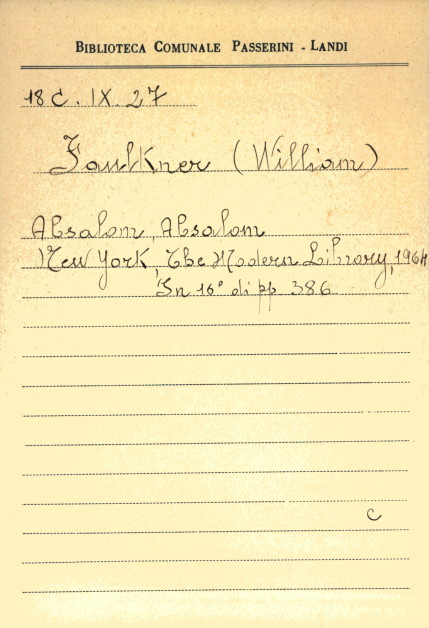 BIBLIOTECA COMUNALE PASSERINI - LANDI
18 C. IX. 27
Faulkner (William)
Absalom, Absalom
New York, The Modern Library, 1964
In 16° di pp 386
C